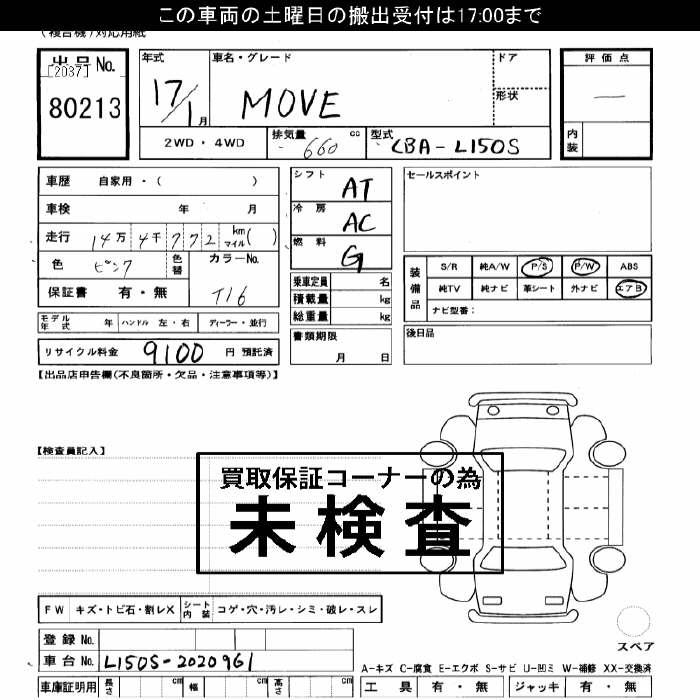 この車両の土曜日の搬出受付は17:00まで
(複合機)対応用紙
出品No.
[2037]
80213
年式
17/1月
車名・グレード
MOVE
ドア
形状
評価点
—
内装
2WD・4WD
排気量 660 cc
型式 CBA-L150S
車歴 自家用・( )
車検 年 月
走行 14万 4千 7 7 2 km マイル ( )
色 ピンク 色替 カラーNo.
T16
保証書 有・無
シフト AT
冷房 AC
燃料 G
乗車定員 名
積載量 kg
総重量 kg
書類期限
月 日
セールスポイント
装備品
S/R 純A/W P/S P/W ABS
純TV 純ナビ 革シート 外ナビ エアB
ナビ型番:
後日品
モデル年式 年 ハンドル 左・右 ディーラー・並行
リサイクル料金 9100 円 預託済
【出品店申告欄(不良箇所・欠品・注意事項等)】
【検査員記入】
買取保証コーナーの為
未検査
FW キズ・トビ石・割レX シート内装 コゲ・穴・汚レ・シミ・破レ・スレ
登録 No.
車台 No. L150S-2020961
スペア
A-キズ C-腐食 E-エクボ S-サビ U-凹ミ W-補修 XX-交換済
車庫証明用 長さ cm 幅 cm 高さ cm
工具 有・無 ジャッキ 有・無